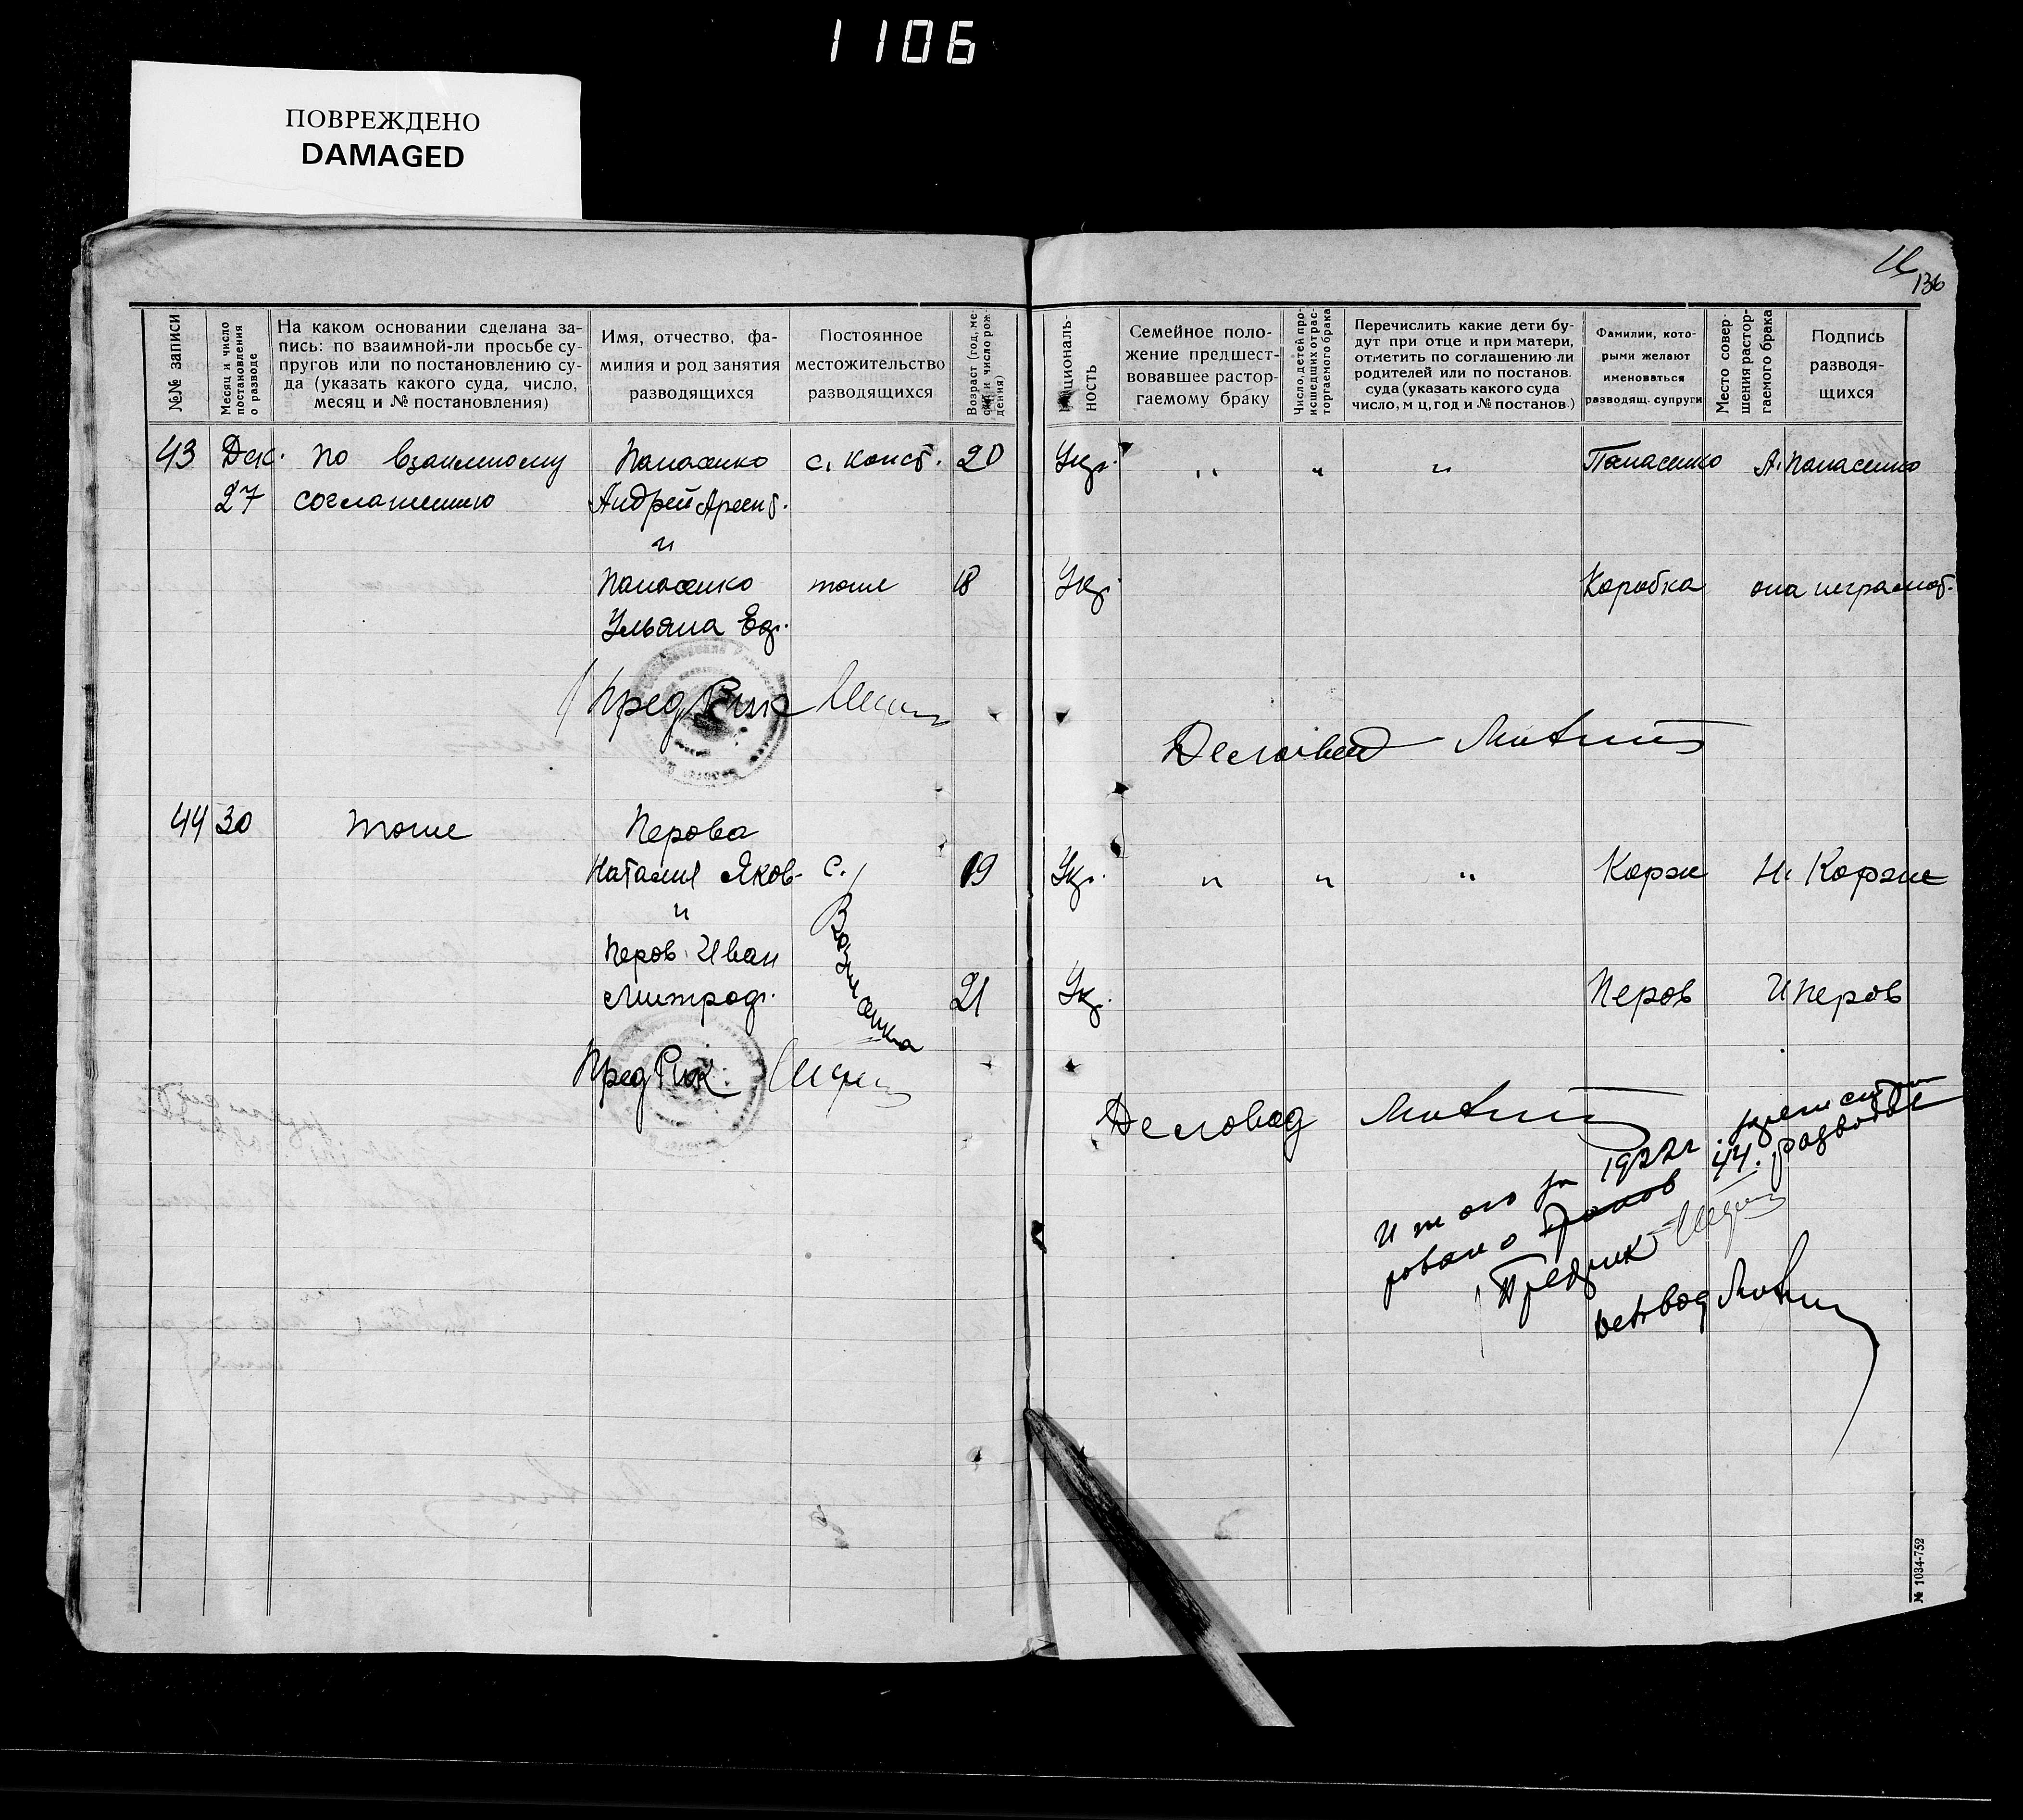 1106
ПОВРЕЖДЕНО
DAMAGED
136
№№ записи
Месяц и число постановления о разводе
На каком основании сделана за-
пись: по взаимной-ли просьбе су-
пругов или по постановлению су-
да (указать какого суда, число,
месяц и № постановления)
Имя, отчество, фа-
милия и род занятия
разводящихся
Постоянное
местожительство
разводящихся
Возраст (год, ме-
сяц и число рож-
дения)
Националь-
ность
Семейное поло-
жение предшест-
вовавшее растор-
гаемому браку
Число детей про-
исшедших от рас-
торгаемого брака
Перечислить какие дети бу-
дут при отце и при матери,
отметить по соглашению ли
родителей или по постанов.
суда (указать какого суда
число, м ц, год и № постанов.)
Фамилии, кото-
рыми желают
именоваться
разводящ. супруги
Место совер-
шения растор-
гаемого брака
Подпись
разводя-
щихся
43 Дек. по взаимному Панасенко с. Конст. 20 Укр. " " " Панасенко А. Панасенко
27 соглашению Андрей Арент.
и
Панасенко тоже 18 Укр. Коробка она неграмот.
Ульяна Ед.
Пред Рик
Деловод
44 30 тоже Перова
Наталия Яков. с. 19 Укр. " " " Корж Н. Корж
и
Перов Иван
Митроф. 21 Укр. Перов И Перов
Пред Рик.
Деловод
Итого за 1922 г. зарегистри
ровано 44. развода
Предрик
Деловод
№ 1034-752